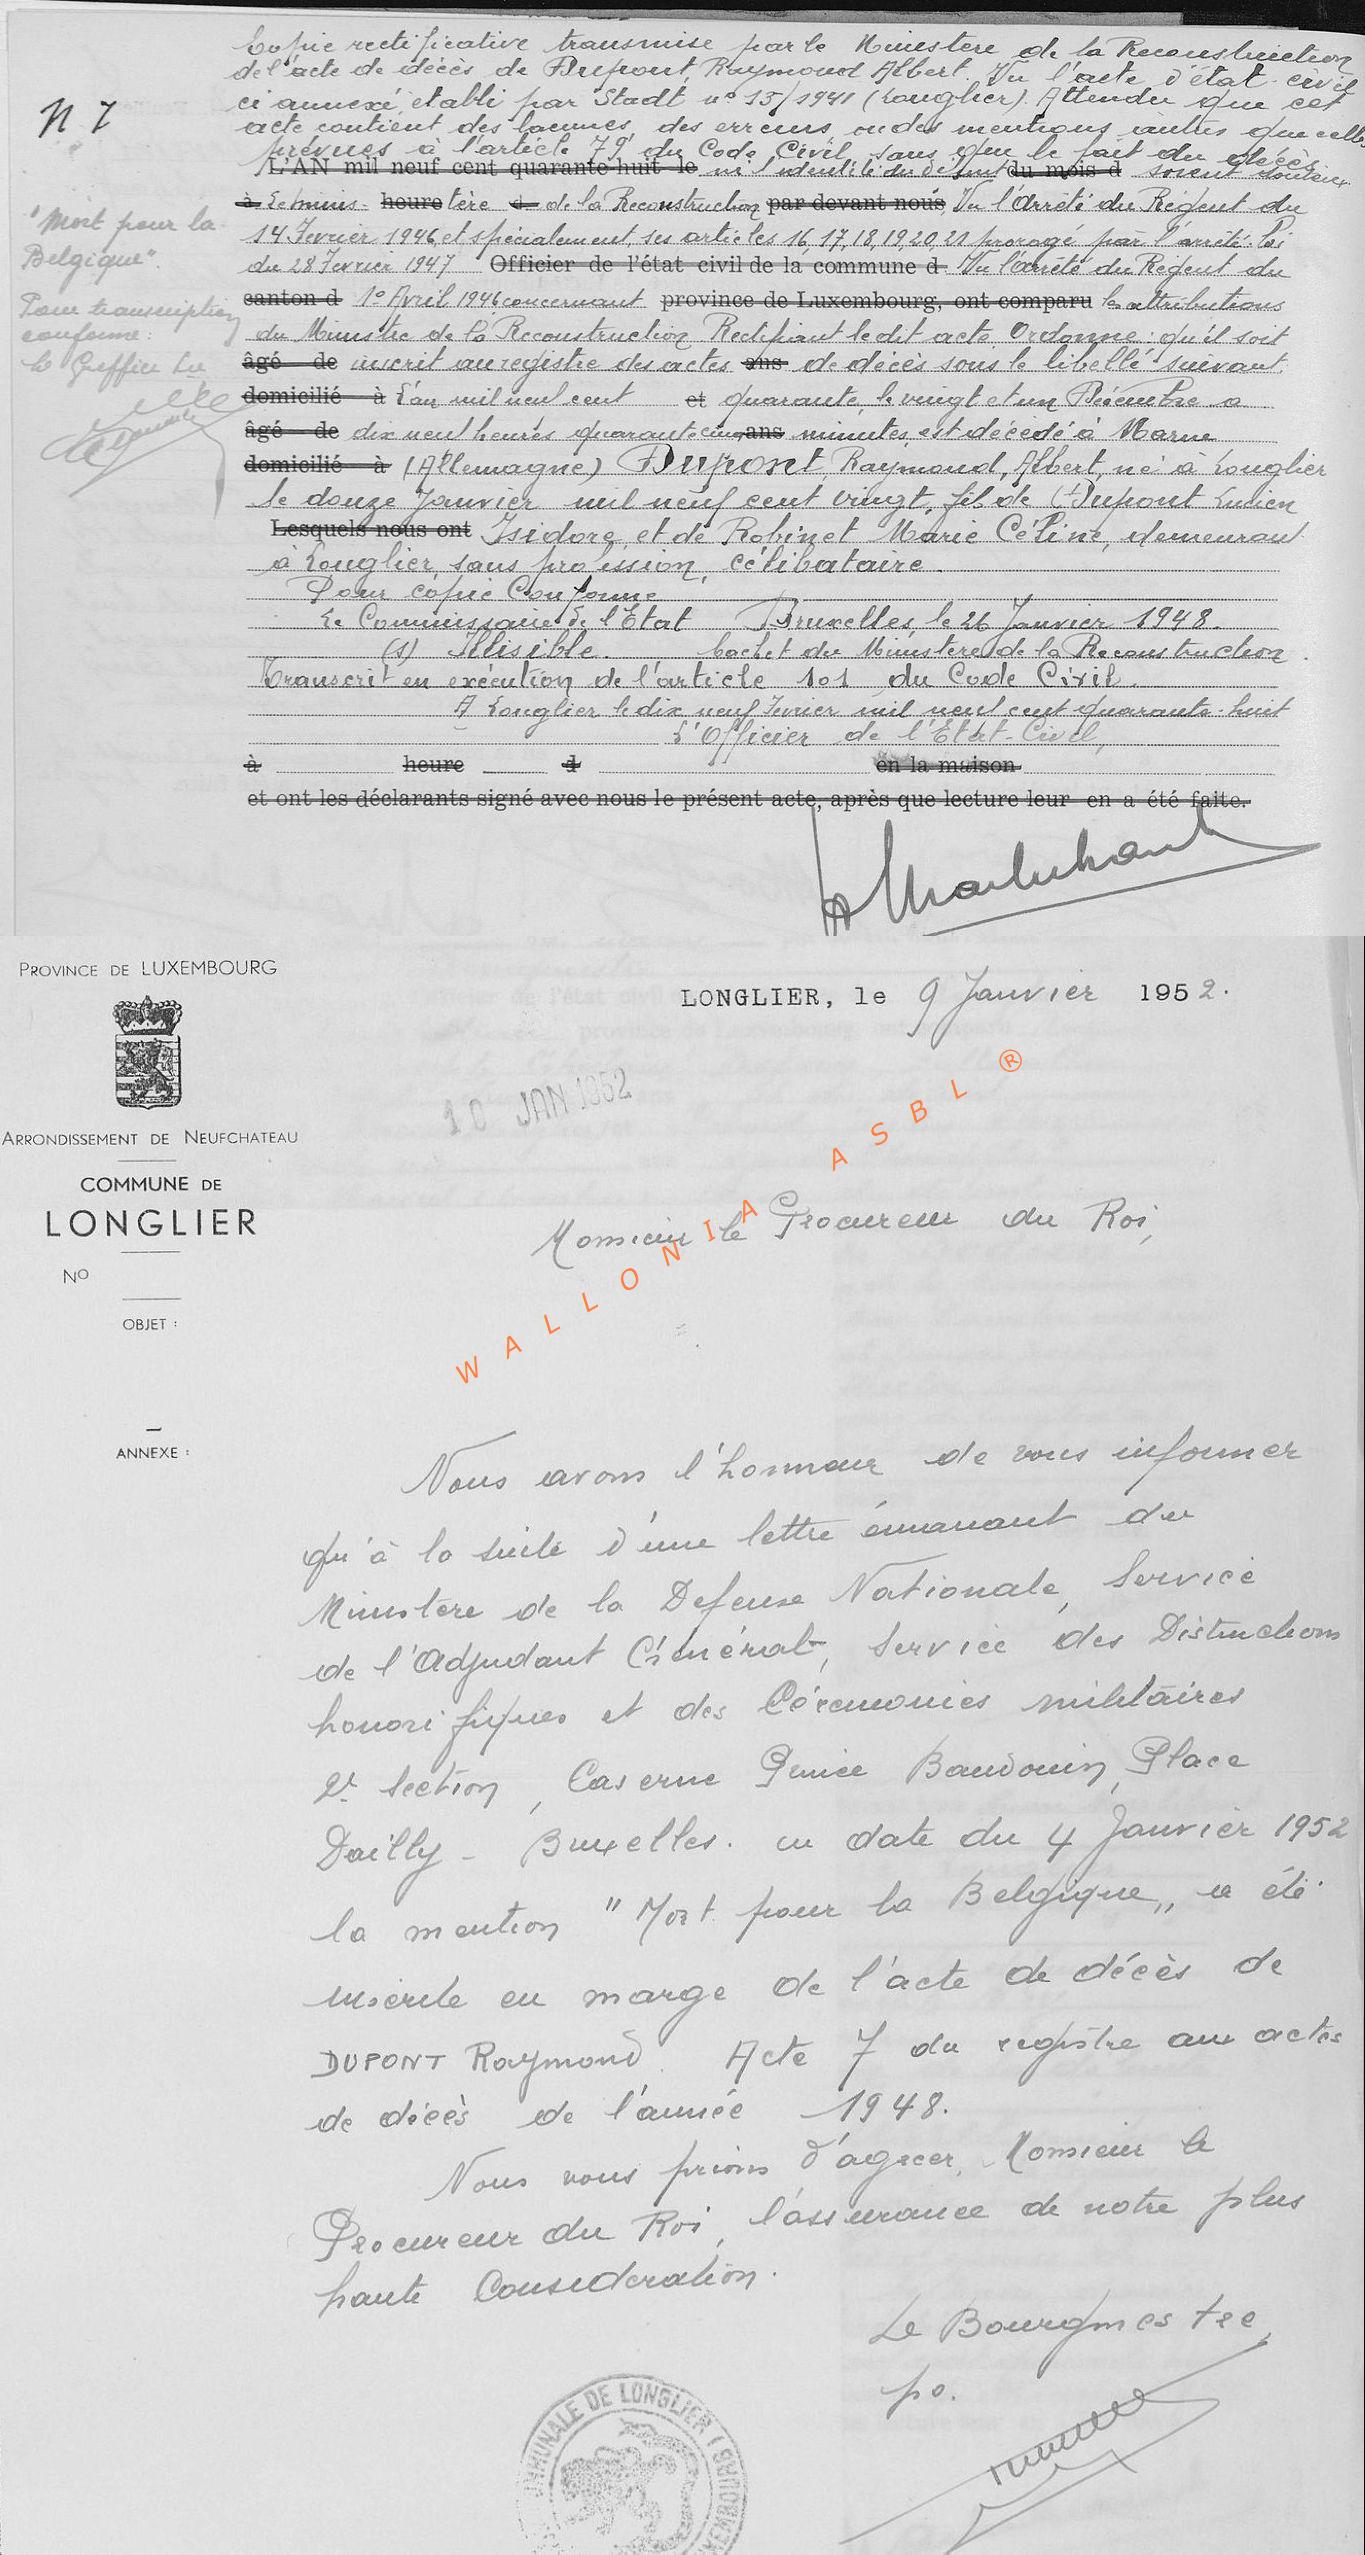 Copie rectificative transmise par le Ministère de la Reconstruction
de l'acte de décès de Dupont, Raymond Albert. Vu l'acte d'état-civil
ci annexé établi par Stadt n° 15/1941 (Longlier). Attendu que cet
N 7
acte contient des lacunes, des erreurs, ou des mentions autres que celles
prévues à l'article 79 du Code Civil sans que le fait du décès
L'AN mil neuf cent quarante-huit le ni l'identité du défunt du mois d soient douteux
à Le minis- heure tère d de la Reconstruction par devant nous Vu l'arrêté du Régent du
"Mort pour la
14 Février 1946, et spécialement, ses articles 16, 17, 18, 19, 20, 21 prorogé par l'arrêté-loi
Belgique".
du 28 Fevrier 1947 Officier de l'état civil de la commune d Vu l'arrêté du Régent du
Pour transcription
canton d 1° Avril 1946 concernant province de Luxembourg, ont comparu les attributions
conforme:
du Ministre de la Reconstruction Rectifiant le dit acte Ordonne: qu'il soit
Le Greffier
âgé de inscrit au registre des actes ans de décès sous le libellé suivant
domicilié à L'an mil neuf cent et quarante, le vingt et un Décembre a
âgé de dix neuf heures quarante cinq ans minutes, est décédé à Marne
domicilié à (Allemagne) Dupont, Raymond, Albert, né à Longlier
le douze Janvier mil neuf cent vingt, fils de Dupont Lucien
Lesquels nous ont Isidore, et de Robinet Marie Céline, demeurant
à Longlier, sans profession, célibataire.
Pour copie Conforme
Le Commissaire de l'Etat Bruxelles, le 26 Janvier 1948.
(s) Illisible. Cachet du Ministère de la Reconstruction.
Transcrit en exécution de l'article 101 du Code Civil.
A Longlier le dix neuf Fevrier mil neuf cent quarante-huit
L'Officier de l'Etat-Civil,
à heure d en la maison
et ont les déclarants signé avec nous le présent acte, après que lecture leur en a été faite.
PROVINCE DE LUXEMBOURG
LONGLIER, le 9 Janvier 1952.
10 JAN 1952
ARRONDISSEMENT DE NEUFCHATEAU
COMMUNE DE
LONGLIER
Monsieur le Procureur du Roi,
NO
OBJET :
WALLONIA ASBL ®
ANNEXE :
Nous avons l'honneur de vous informer
qu'à la suite d'une lettre émanant du
Ministère de la Défense Nationale, Service
de l'Adjudant Général, Service des Distinctions
honorifiques et des Cérémonies militaires
2e Section, Caserne Prince Baudouin, Place
Dailly - Bruxelles. en date du 4 Janvier 1952
la mention "Mort pour la Belgique,, a été
inscrite en marge de l'acte de décès de
DUPONT Raymond. Acte 7 du registre aux actes
de décès de l'année 1948.
Nous vous prions d'agréer, Monsieur le
Procureur du Roi, l'assurance de notre plus
haute Considération.
Le Bourgmestre,
po.
COMMUNALE DE LONGLIER (LUXEMBOURG